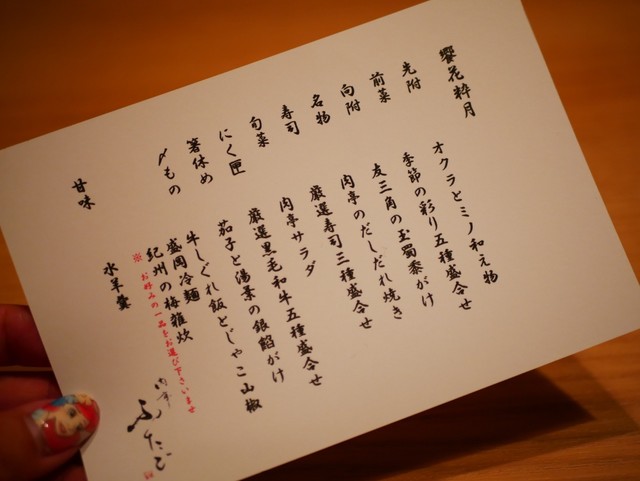 饗花粋月
先附 オクラとミノ和え物
前菜 季節の彩り五種盛合せ
向附 友三角の玉蜀黍がけ
名物 肉亭のだしだれ焼き
寿司 厳選寿司三種盛合せ
旬菜 肉亭サラダ
にく匣 厳選黒毛和牛五種盛合せ
箸休め 茄子と湯葉の銀餡がけ
〆もの 牛しぐれ飯とじゃこ山椒
盛岡冷麺
紀州の梅雑炊
※ お好みの一品をお選び下さいませ
甘味 水羊羹
肉亭 ふたご